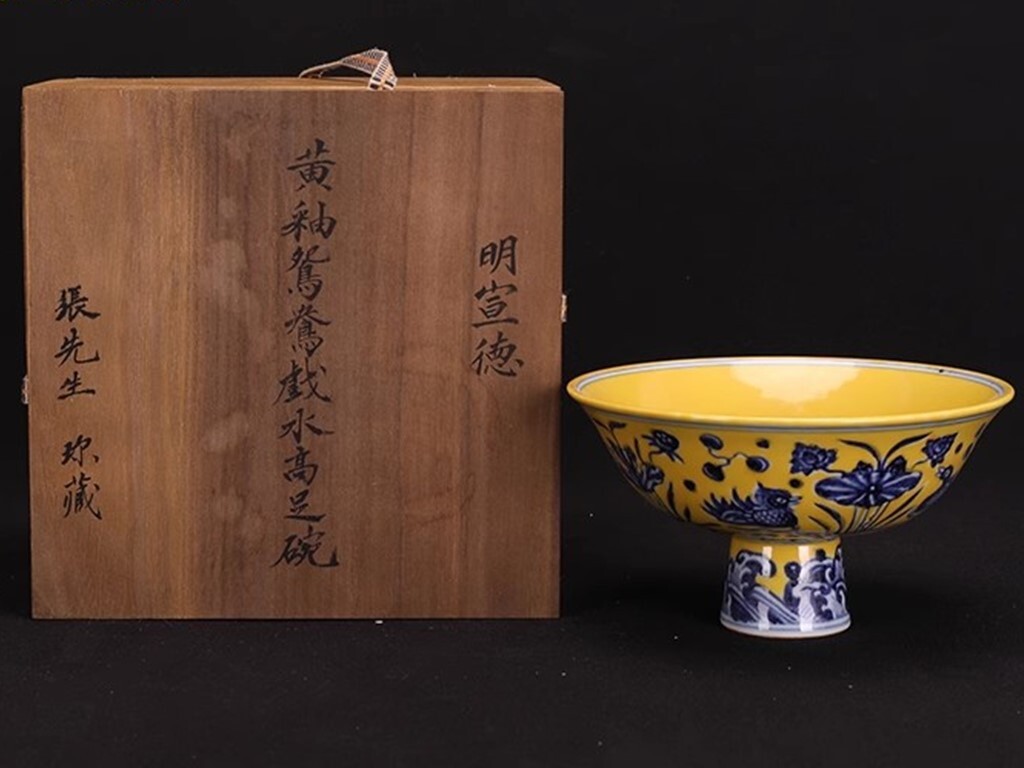 明宣德
黄釉鴛鴦戲水高足碗
張先生 珎藏